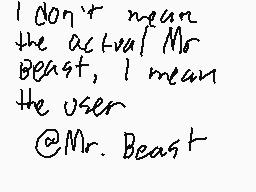 I don't mean
the actual Mr
Beast, I mean
the user
@Mr. Beast